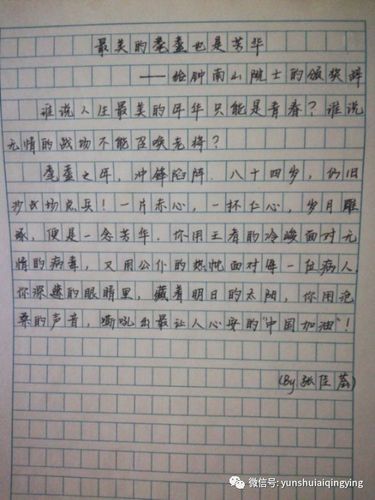 最美的耄耋也是芳华
——给钟南山院士的颁奖辞
谁说人任最美的年华只能是青春？谁说
无情的战场不能召唤老将？
耄耋之年，冲锋陷阵。八十四岁，仍旧
沙战场点兵！一片赤心，一杯仁心，岁月雕
琢，便是一念芳华。你用王者的冷峻面对无
情的病毒，又用公仆的热忱面对每一位病人，
你深邃的眼睛里，藏着明日的太阳，你用沧
桑的声音，嘶吼出最让人心安的“中国加油”！
(By张佳茜)
微信号: yunshuaiqingying